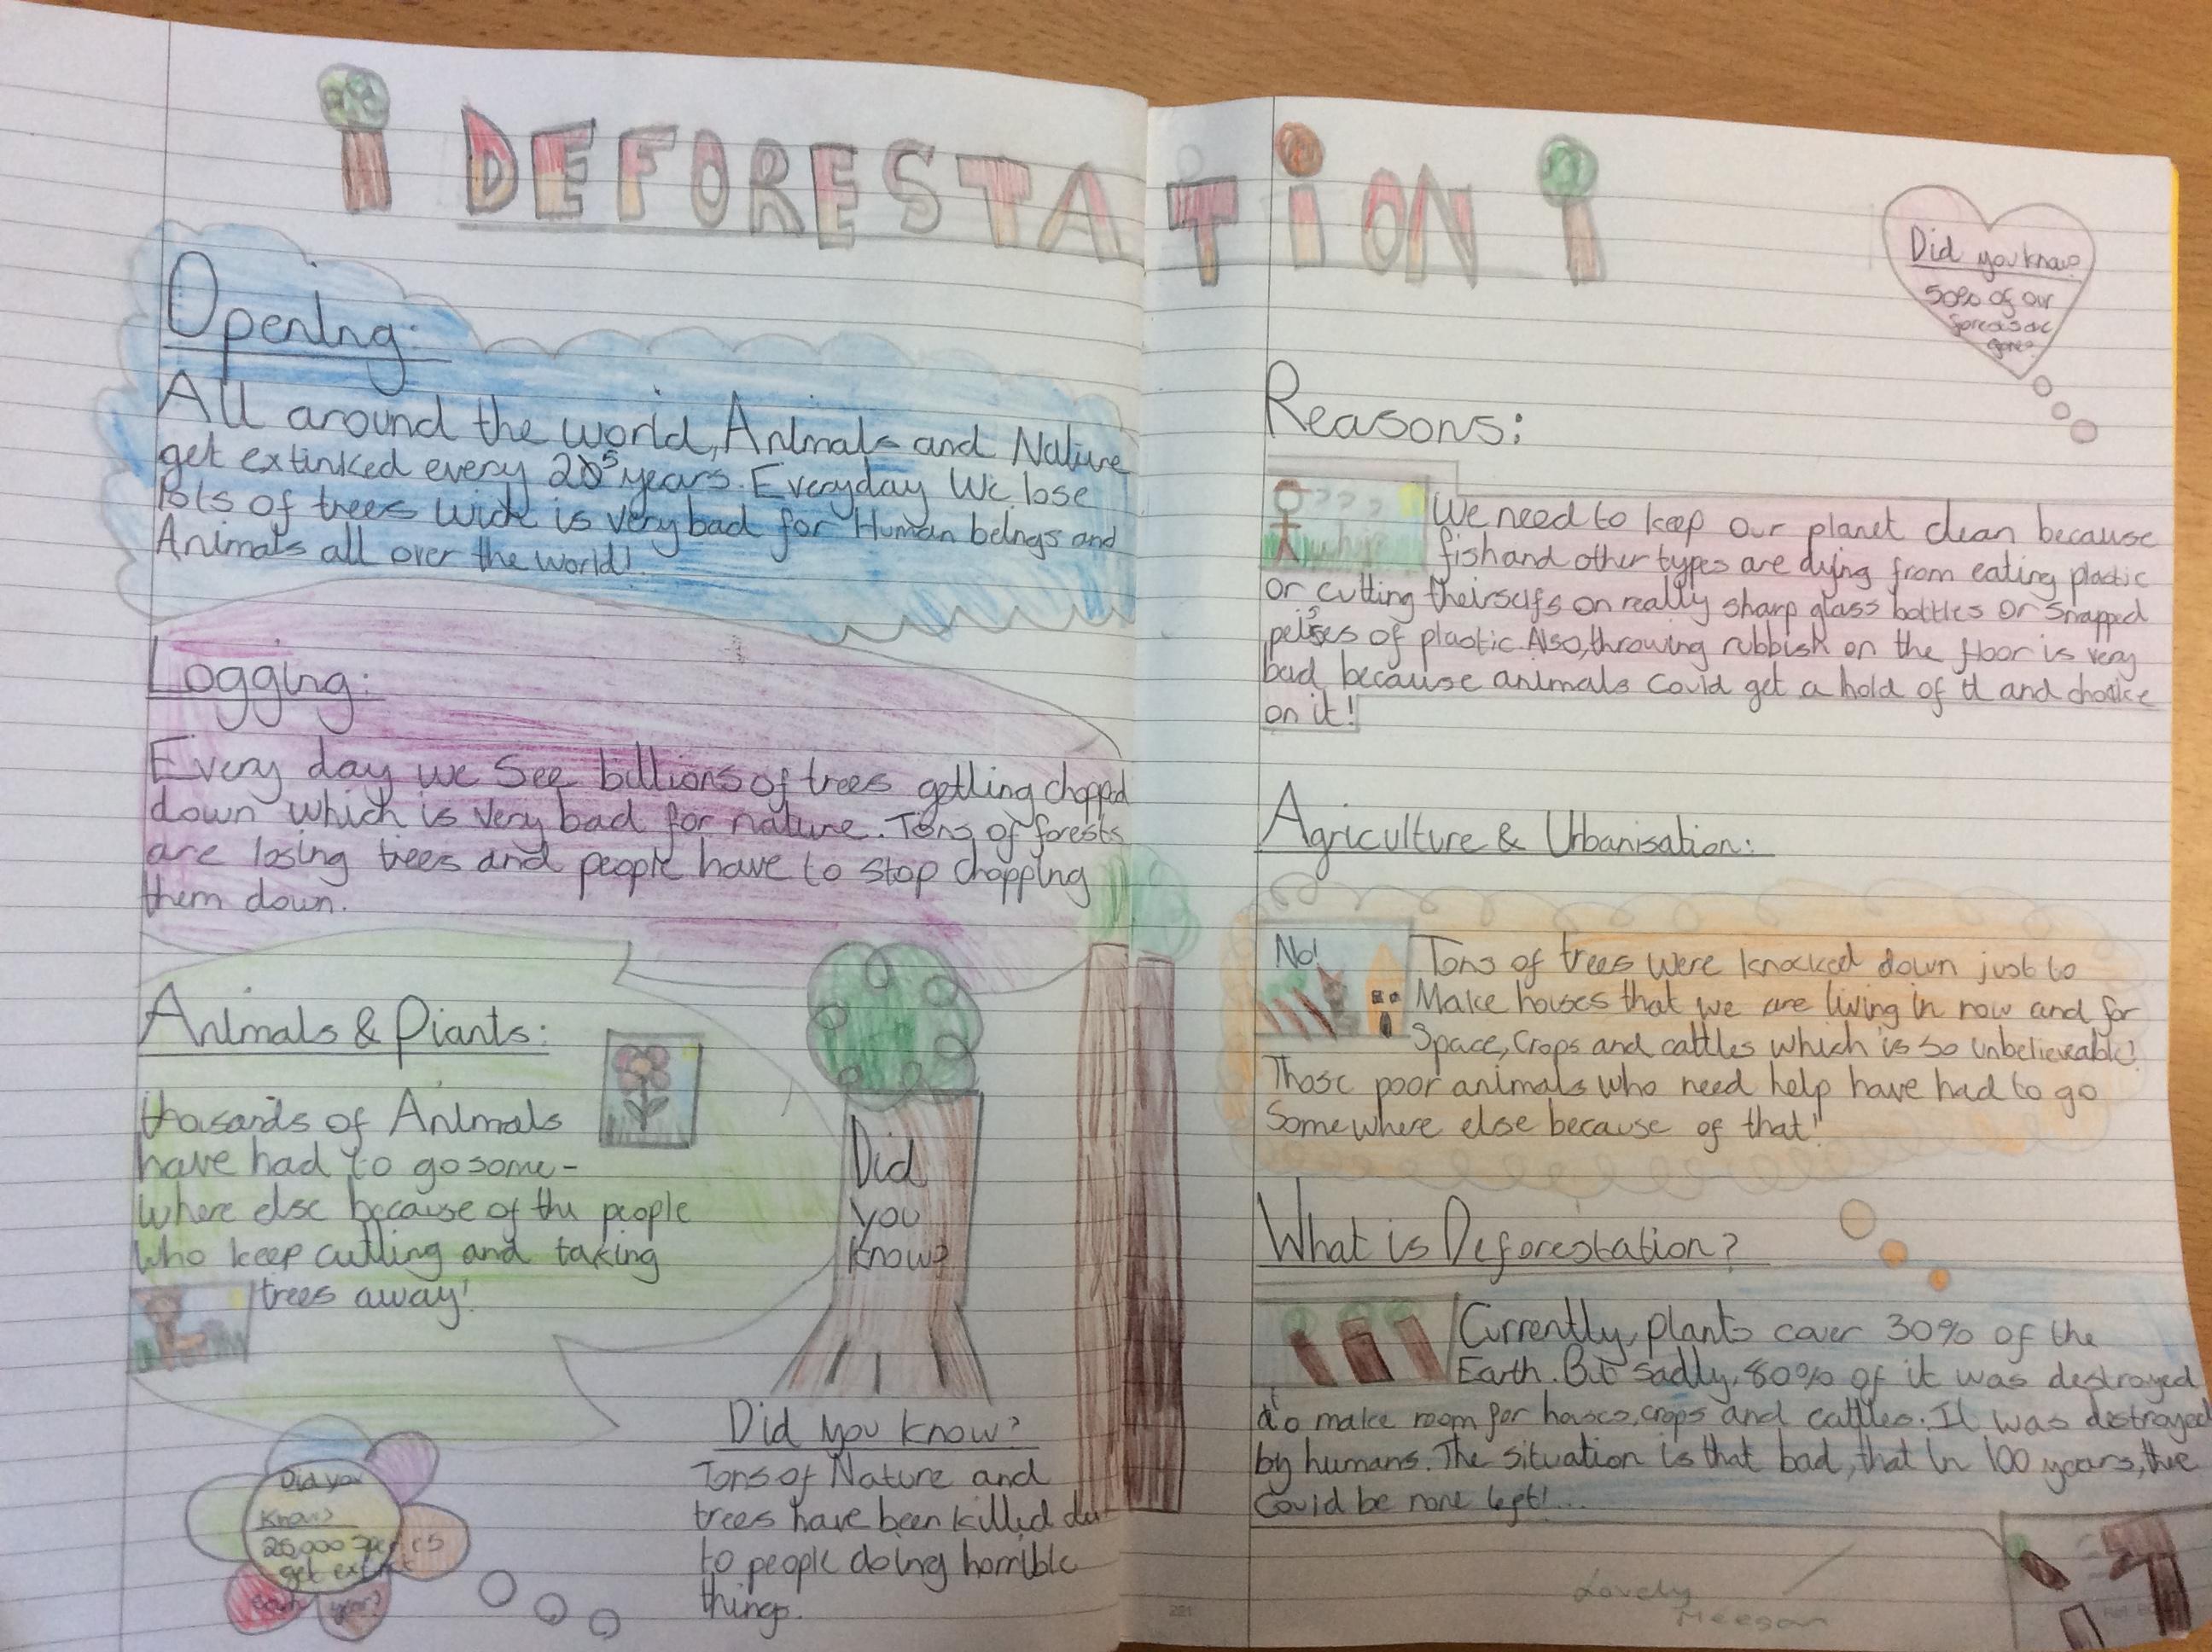 DEFORESTATION
Opening:
All around the world, Animals and Nature
get extinked every 25 years. Everyday We lose
lots of trees wich is very bad for Human beings and
Animals all over the world!
Logging:
Every day we See billions of trees getting chopped
down which is very bad for nature. Tons of forests
are losing trees and people have to stop chopping
them down.
Animals & Plants:
thosands of Animals
have had to go some-
where else because of the people
who keep cutting and taking
trees away!
Did
you
know?
Did you know?
Tons of Nature and
trees have been killed due
to people doing horrible
things.
Did you
know?
species
get extinct
each year?
Did you know?
50% of our
forests are
gone?
Reasons:
We need to keep our planet clean because
fish and other types are dying from eating plastic
or cutting theirselfs on really sharp glass bottles or snapped
peises of plastic. Also, throwing rubbish on the floor is very
bad because animals could get a hold of it and choke
on it!
Agriculture & Urbanisation:
No!
Tons of trees were knocked down just to
Make houses that we are living in now and for
Space, Crops and cattles which is so unbelieveable!
Those poor animals who need help have had to go
Somewhere else because of that!
What is Deforestation?
Currently, plants cover 30% of the
Earth. But sadly, 80% of it was destroyed
to make room for houses, crops and cattles. It was destroyed
by humans. The situation is that bad, that in 100 years, there
could be none left!...
Lovely
Meegan